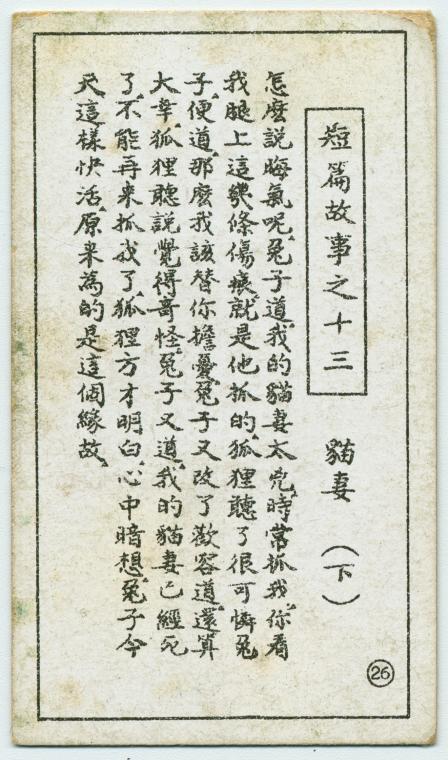 短篇故事之十三
貓妻（下）
怎麽說晦氣呢、兔子道、我的貓妻太兇、時常抓我、你看
我腿上這幾條傷痕、就是他抓的、狐狸聽了很可憐兔
子、便道、那麽我該替你擔憂、兔子又改了歡容道、還算
大幸、狐狸聽說覺得奇怪、兔子又道、我的貓妻已經死
了、不能再來抓我了、狐狸方才明白、心中暗想、兔子今
天這樣快活、原來爲的是這個緣故、
26